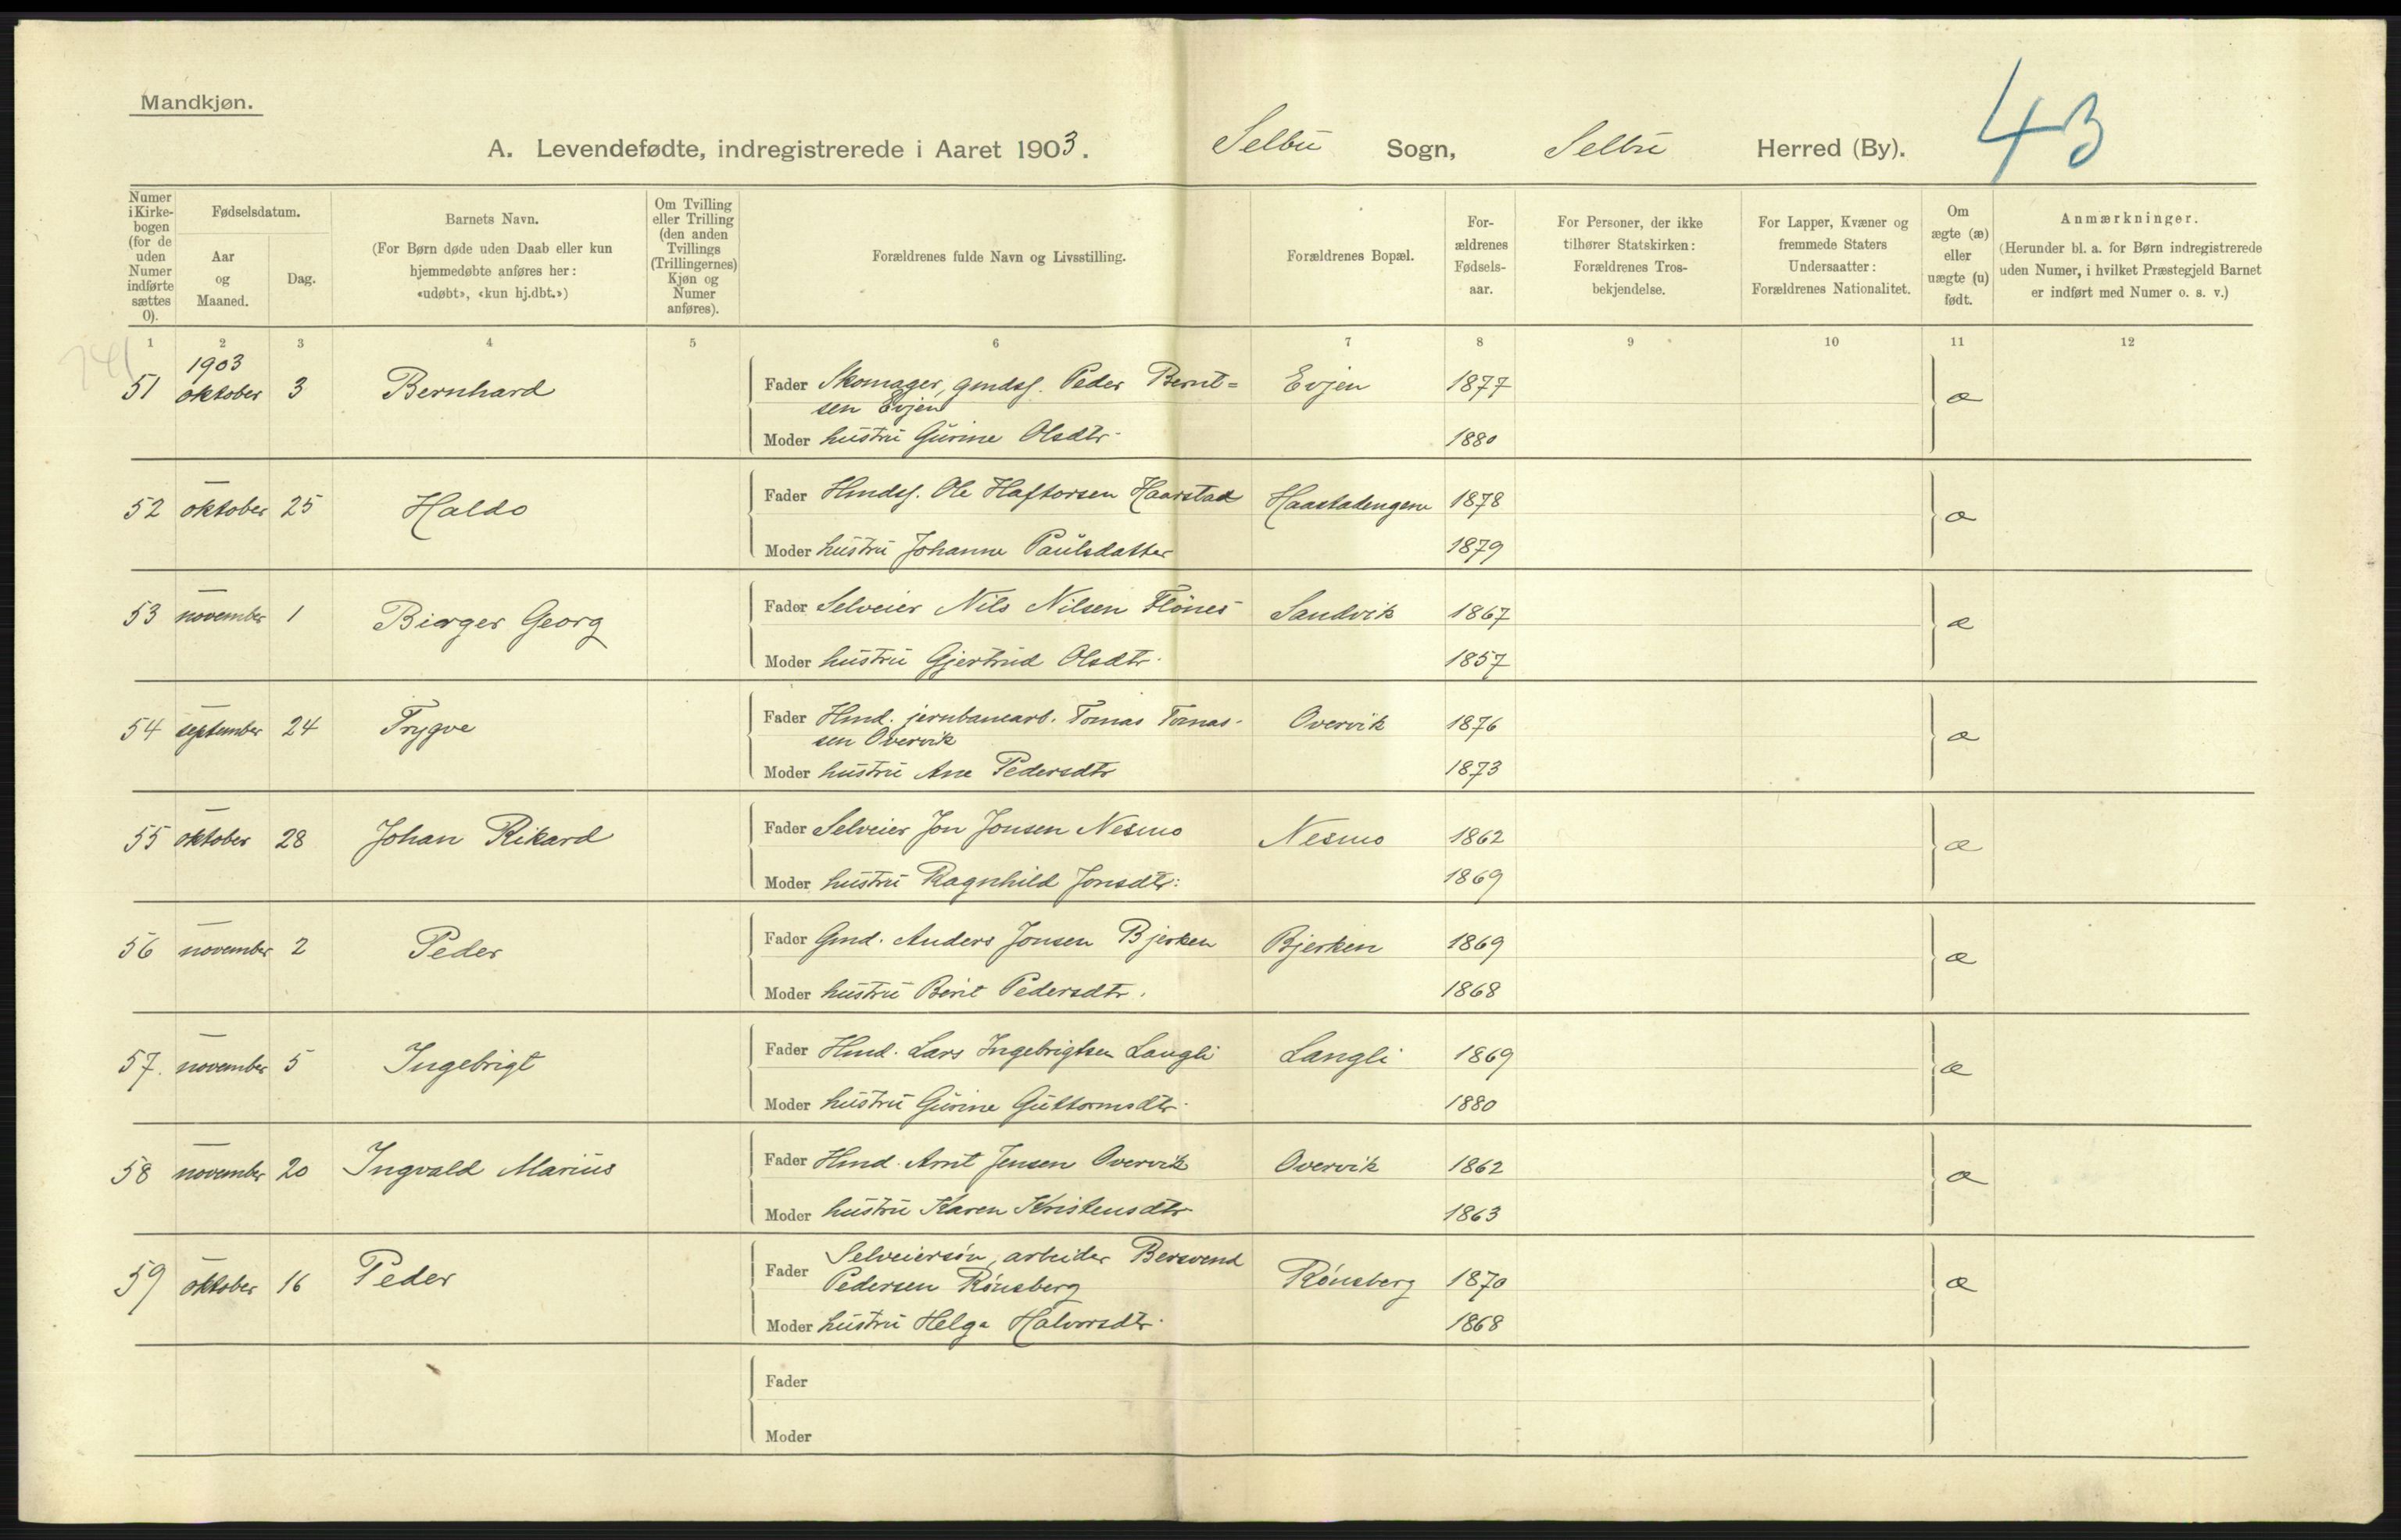 Mandkjøn.
A. Levendefødte, indregistrerede i Aaret 1903. Selbu Sogn, Selbu Herred (By). 43
Numer i Kirkebogen (for de uden Numer indførte sættes 0).
Fødselsdatum.
Aar og Maaned.
Dag.
Barnets Navn.
(For Børn døde uden Daab eller kun
hjemmedøbte anføres her:
«udøbt», «kun hj.dbt.»)
Om Tvilling
eller Trilling
(den anden
Tvillings
(Trillingernes)
Kjøn og
Numer
anføres).
Forældrenes fulde Navn og Livsstilling.
Forældrenes Bopæl.
For-
ældrenes
Fødsels-
aar.
For Personer, der ikke
tilhører Statskirken:
Forældrenes Tros-
bekjendelse.
For Lapper, Kvæner og
fremmede Staters
Undersaatter:
Forældrenes Nationalitet.
Om
ægte (æ)
eller
uægte (u)
født.
Anmærkninger.
(Herunder bl. a. for Børn indregistrerede
uden Numer, i hvilket Præstegjeld Barnet
er indført med Numer o. s. v.)
1 2 3 4 5 6 7 8 9 10 11 12
1903
51 oktober 3 Bernhard Fader Skomager, gmdsf. Peder Bernt= Evjen 1877 æ
sen Evjen
Moder hustru Gurine Olsdtr. 1880
52 oktober 25 Haldo Fader Hmdsf. Ole Haftorsen Haarstad Haastadengene 1878 æ
Moder hustru Johanne Paulsdatter 1879
53 november 1 Birger Georg Fader Selveier Nils Nilsen Flönes Sandvik 1867 æ
Moder hustru Gjertrud Olsdtr. 1857
54 september 24 Trygve Fader Hmd. jernbanearb. Tomas Tomas- Overvik 1876 æ
sen Overvik
Moder hustru Ane Pedersdtr 1873
55 oktober 28 Johan Rikard Fader Selveier Jon Jonsen Nesmo Nesmo 1862 æ
Moder hustru Ragnhild Jonsdtr: 1869
56 november 2 Peder Fader Gmd. Anders Jonsen Bjerken Bjerken 1869 æ
Moder hustru Berit Pedersdtr. 1868
57. november 5 Ingebrigt Fader Hmd. Lars Ingebrigtsen Langli Langli 1869 æ
Moder hustru Gurine Guttormsdtr. 1880
58 november 20 Ingvald Marius Fader Hmd. Arnt Jensen Overvik Overvik 1862 æ
Moder hustru Karen Kristensdtr 1863
59 oktober 16 Peder Fader Selveiersön, arbeider Bersvend
Pedersen Rönsberg Rönsberg 1870 æ
Moder hustru Helga Halvorsdtr. 1868
Fader
Moder